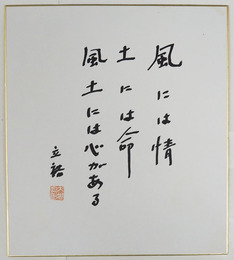 風には情
土には命
風土には心がある
立裕